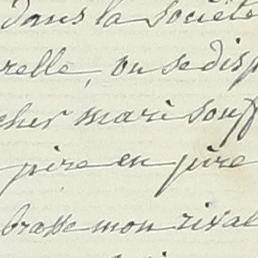 dans la société
relle, ou se disp
cher mari souff
pire en pire
brasse mon rival